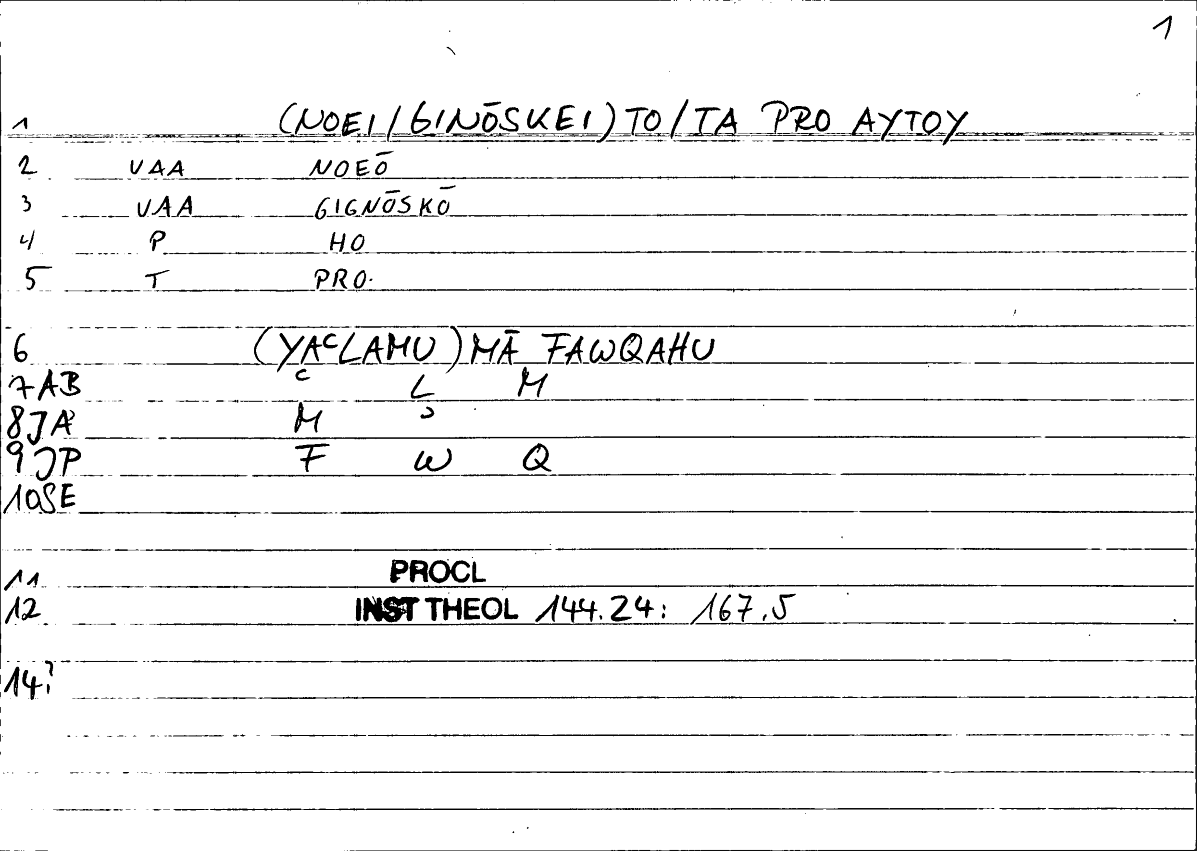 1
1 (NOEI/GINŌSKEI) TO/TA PRO AYTOY
2 VAA NOEŌ
3 VAA GIGNŌSKŌ
4 P HO
5 T PRO.
6 (YAᶜLAMU) MĀ FAWQAHU
7AB ᶜ L M
8JA M ᵓ
9JP F W Q
10SE
11 PROCL
12 INST THEOL 144.24: 167.5
14?